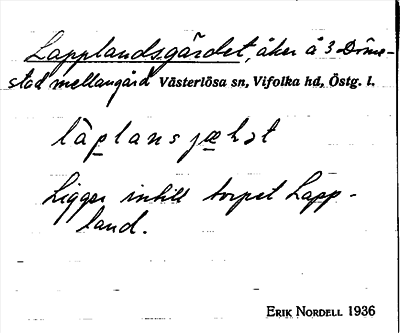 Lapplandsgärdet, åker å 3 Döme-
stad mellangård Västerlösa sn, Vifolka hd, Östg. l.
làplansjæḥət
Ligger intill torpet Lapp-
land.
ERIK NORDELL 1936